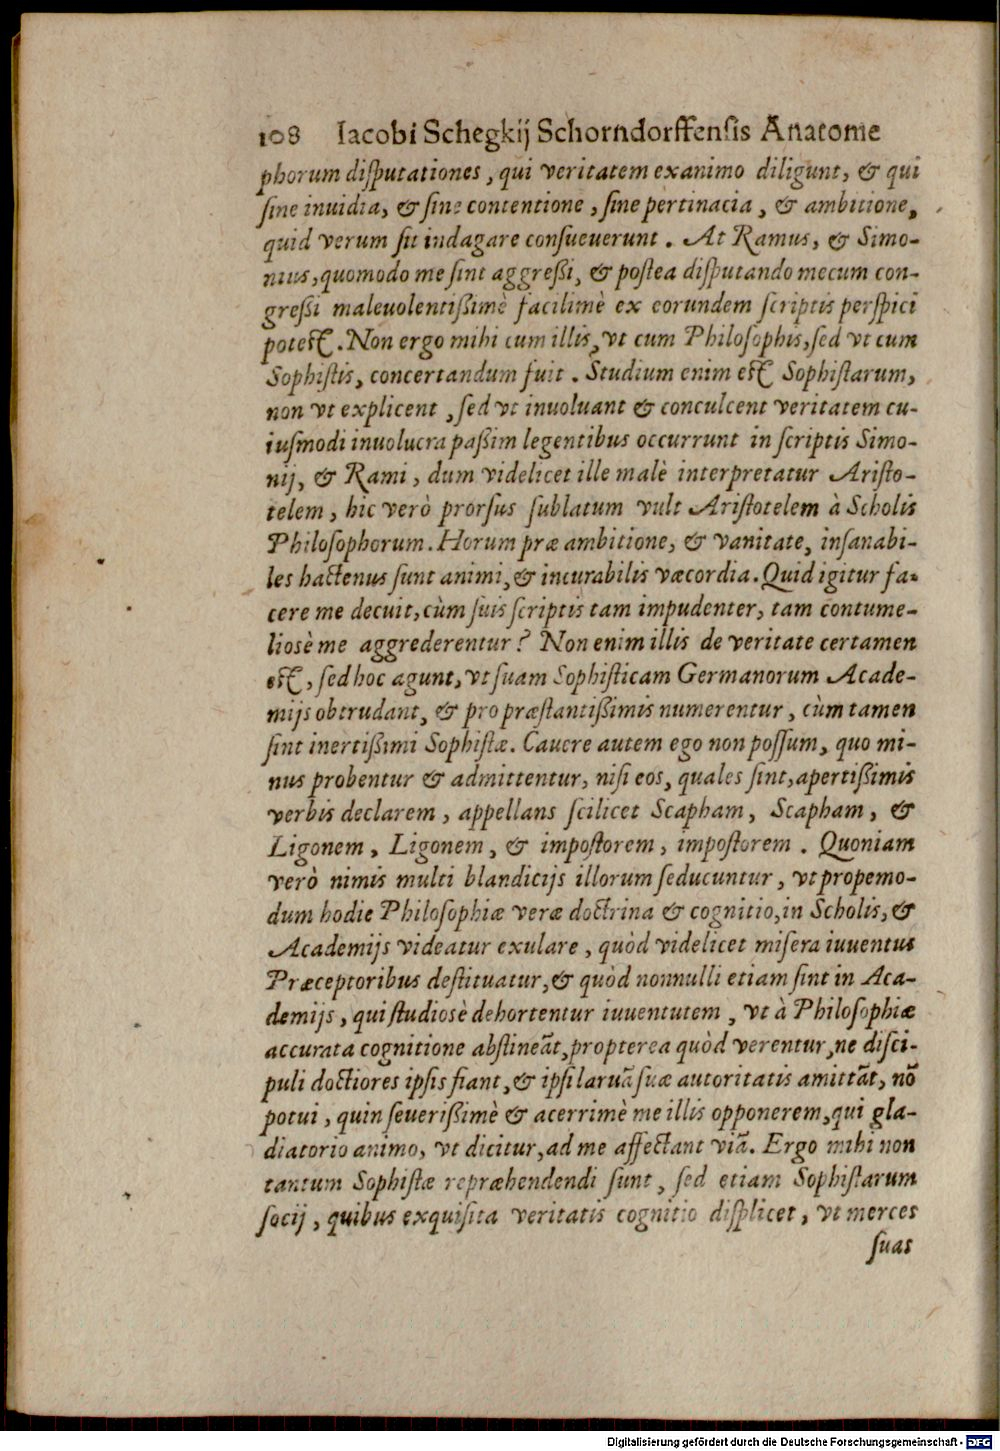 108 Iacobi Schegkij Schorndorffensis Anatome
phorum disputationes, qui veritatem exanimo diligunt, & qui
sine inuidia, & sine contentione, sine pertinacia, & ambitione,
quid verum sit indagare consueuerunt. At Ramus, & Simo-
nius, quomodo me sint aggreßi, & postea disputando mecum con-
greßi maleuolentißimè facilimè ex eorundem scriptis perspici
potest. Non ergo mihi cum illis, vt cum Philosophis, sed vt cum
Sophistis, concertandum fuit. Studium enim est Sophistarum,
non vt explicent, sed vt inuoluant & conculcent veritatem cu-
iusmodi inuolucra paßim legentibus occurrunt in scriptis Simo-
nij, & Rami, dum videlicet ille malè interpretatur Aristo-
telem, hic verò prorsus sublatum vult Aristotelem à Scholis
Philosophorum. Horum præ ambitione, & vanitate, insanabi-
les hactenus sunt animi, & incurabilis væcordia. Quid igitur fa-
cere me decuit, cùm suis scriptis tam impudenter, tam contume-
liosè me aggrederentur? Non enim illis de veritate certamen
est, sed hoc agunt, vt suam Sophisticam Germanorum Acade-
mijs obtrudant, & pro præstantißimis numerentur, cùm tamen
sint inertißimi Sophistæ. Cauere autem ego non possum, quo mi-
nus probentur & admittentur, nisi eos, quales sint, apertißimis
verbis declarem, appellans scilicet Scapham, Scapham, &
Ligonem, Ligonem, & impostorem, impostorem. Quoniam
verò nimis multi blandicijs illorum seducuntur, vt propemo-
dum hodie Philosophiæ veræ doctrina & cognitio, in Scholis, &
Academijs videatur exulare, quòd videlicet misera iuuentus
Præceptoribus destituatur, & quòd nonnulli etiam sint in Aca-
demijs, qui studiosè dehortentur iuuentutem, vt à Philosophiæ
accurata cognitione abstineãt, propterea quòd verentur, ne disci-
puli doctiores ipsis fiant, & ipsi laruã suæ autoritatis amittãt, nõ
potui, quin seuerißimè & acerrimè me illis opponerem, qui gla-
diatorio animo, vt dicitur, ad me affectant viã. Ergo mihi non
tantum Sophistæ repræhendendi sunt, sed etiam Sophistarum
socij, quibus exquisita veritatis cognitio displicet, vt merces
suas
Digitalisierung gefördert durch die Deutsche Forschungsgemeinschaft - DFG